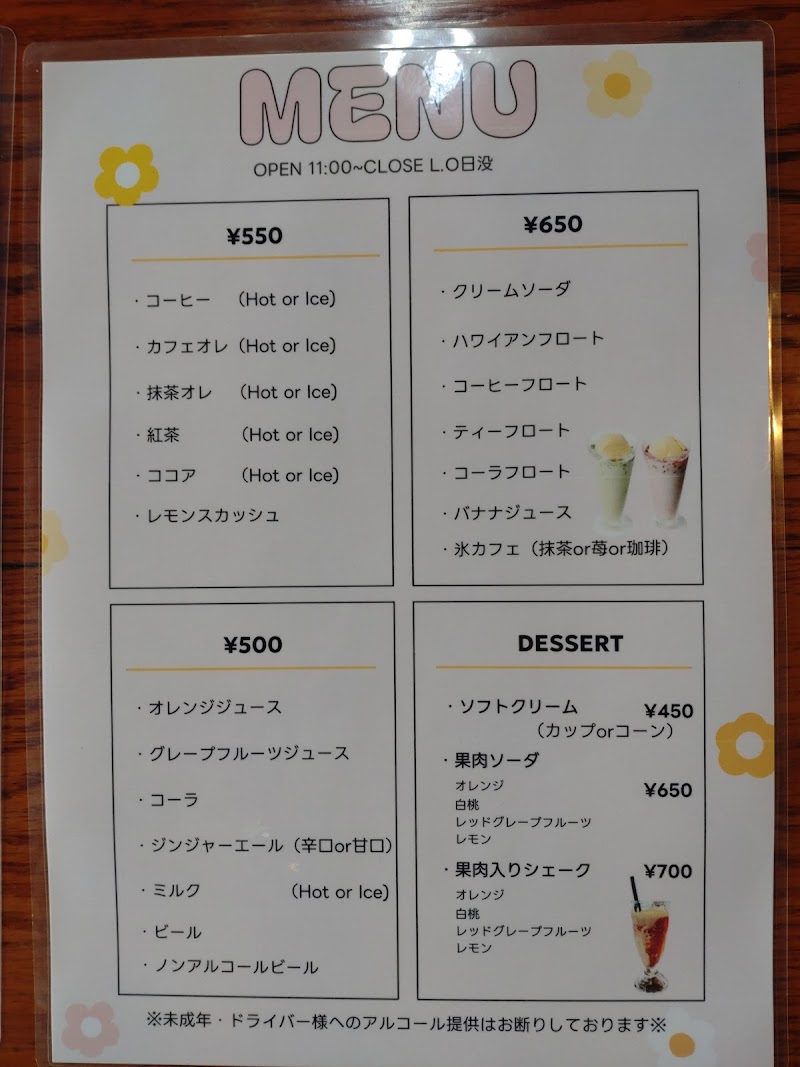 MENU
OPEN 11:00~CLOSE L.O日没
¥550
・コーヒー (Hot or Ice)
・カフェオレ (Hot or Ice)
・抹茶オレ (Hot or Ice)
・紅茶 (Hot or Ice)
・ココア (Hot or Ice)
・レモンスカッシュ
¥650
・クリームソーダ
・ハワイアンフロート
・コーヒーフロート
・ティーフロート
・コーラフロート
・バナナジュース
・氷カフェ（抹茶or苺or珈琲）
¥500
・オレンジジュース
・グレープフルーツジュース
・コーラ
・ジンジャーエール（辛口or甘口）
・ミルク (Hot or Ice)
・ビール
・ノンアルコールビール
DESSERT
・ソフトクリーム ¥450
（カップorコーン）
・果肉ソーダ
オレンジ ¥650
白桃
レッドグレープフルーツ
レモン
・果肉入りシェーク ¥700
オレンジ
白桃
レッドグレープフルーツ
レモン
※未成年・ドライバー様へのアルコール提供はお断りしております※